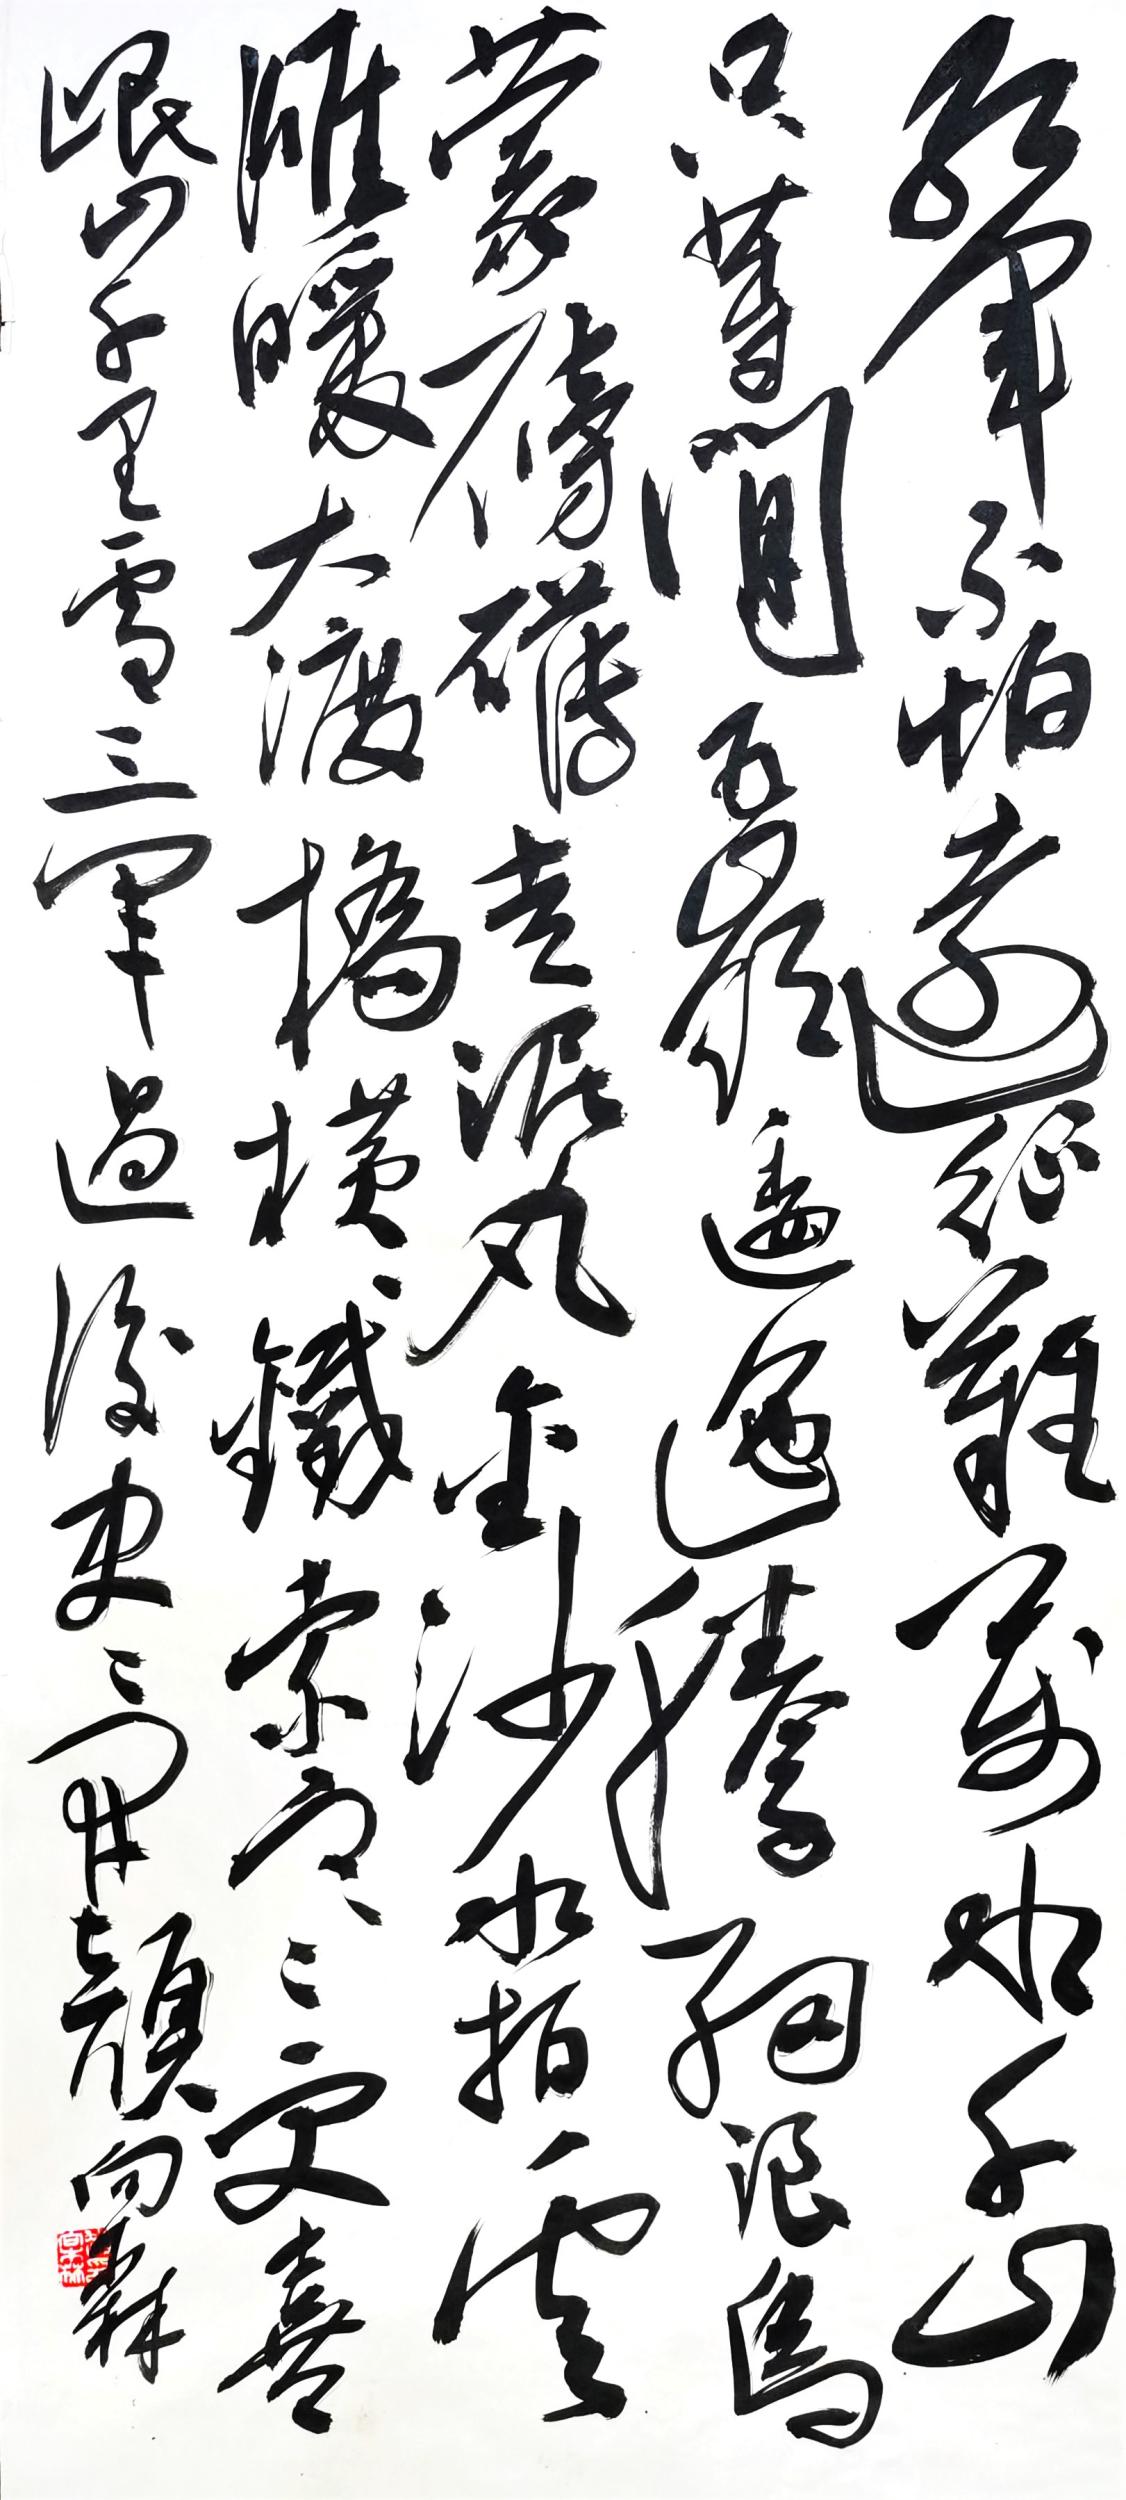 紅軍不怕遠征難萬水千山
只等閒五嶺逶迤騰細浪烏
蒙磅礴走泥丸金沙水拍雲
崖暖大渡橋橫鐵索寒更喜
岷山千里雪三軍過後盡開顏向